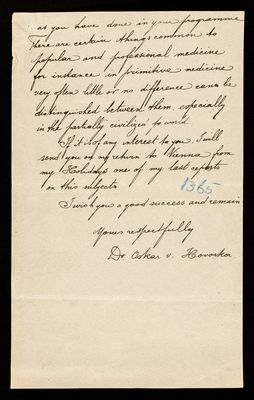 as you have done in your programme
There are certain things common to
popular and professional medicine
for instance in primitive medicine
very often little or no difference can be
distinguished between them especially
in the partially civilized world.
If it is of any interest to you, I will
send you on my return to Vienna from
my Holidays one of my last reports
on this subject.
1365
I wish you a good success and remain
Yours respectfully
Dr Oskar v. Hovorka